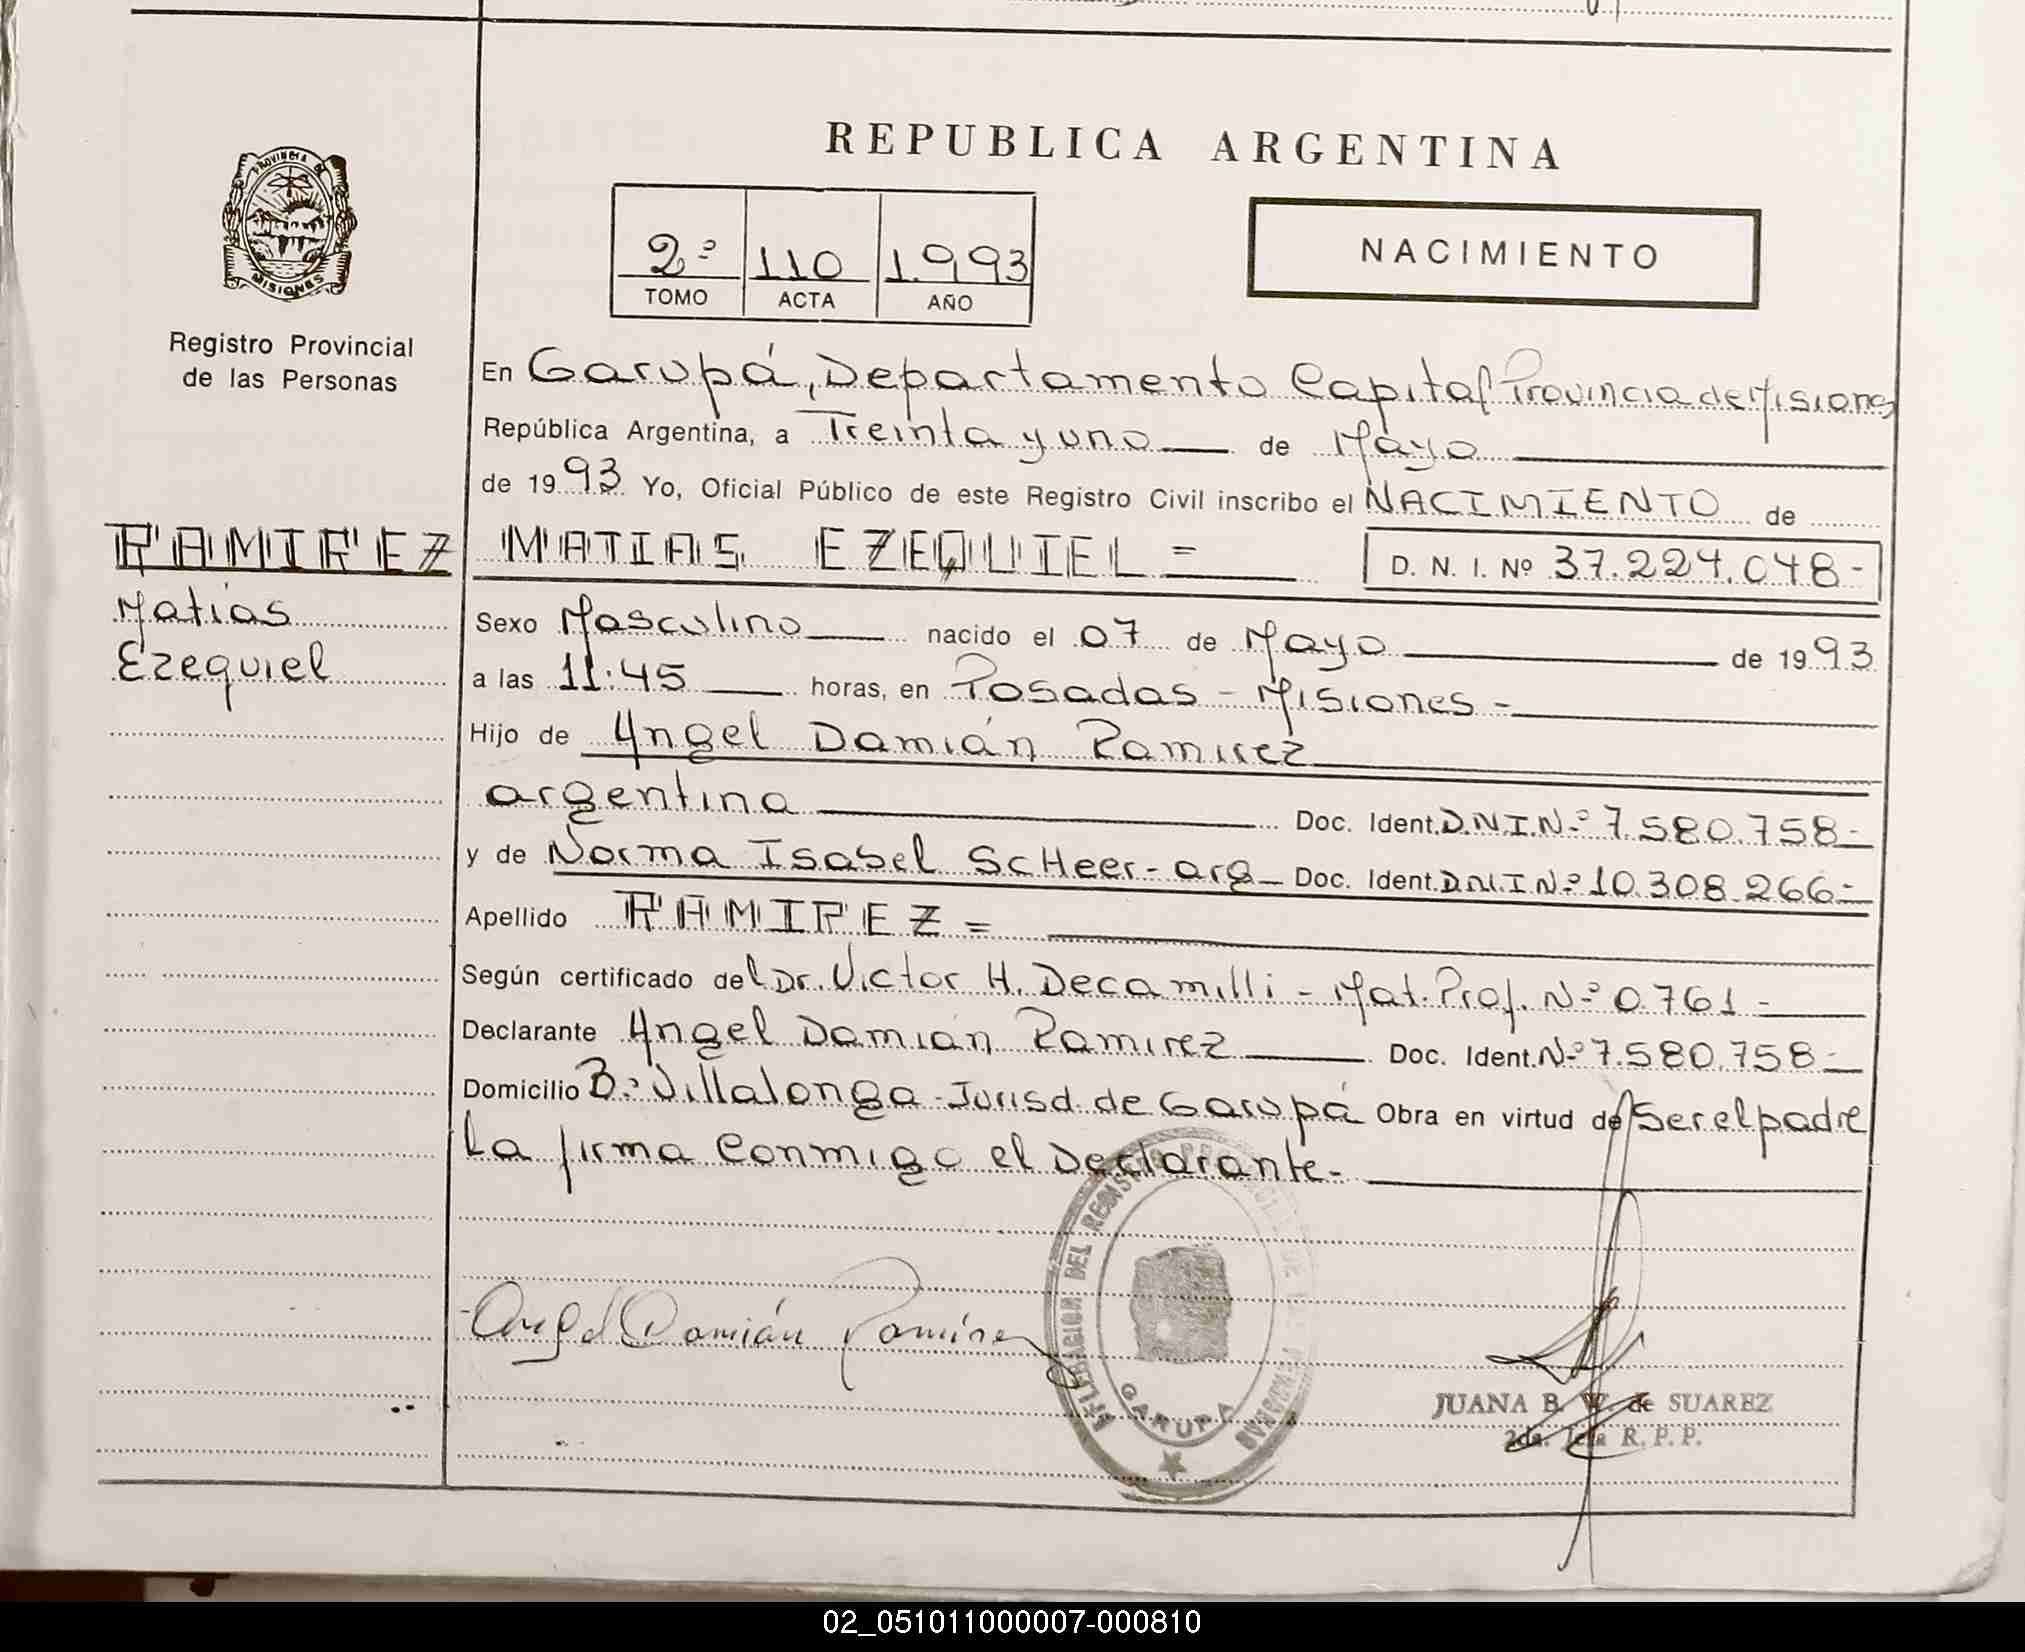 REPUBLICA ARGENTINA
PROVINCIA DE
MISIONES
Registro Provincial
de las Personas
2º 110 1.993
TOMO ACTA AÑO
NACIMIENTO
En Garupá, Departamento Capital Provincia de Misiones
República Argentina, a Treinta y uno de Mayo
de 1993 Yo, Oficial Público de este Registro Civil inscribo el NACIMIENTO de
RAMIREZ
Matías
Ezequiel
MATIAS EZEQUIEL =
D. N. I. Nº 37.224.048-
Sexo Masculino nacido el 07 de Mayo de 1993
a las 11:45 horas, en Posadas - Misiones -
Hijo de Angel Damián Ramirez
argentina Doc. Ident. D.N.I.N.º 7.580.758-
y de Norma Isabel ScHeer - arg - Doc. Ident. D.N.I.N.º 10.308.266-
Apellido RAMIREZ =
Según certificado del Dr. Victor H. Decamilli - Mat. Prof. N.º 0761 -
Declarante Angel Damián Ramirez Doc. Ident. N.º 7.580.758-
Domicilio B.º Villalonga - Jurisd. de Garupá Obra en virtud de Ser el padre
La firma Conmigo el Declarante.
Angel Damián Ramírez
DELEGACION DEL REGISTRO PROVINCIAL DE LAS PERSONAS
GARUPA
JUANA B. W. de SUAREZ
2da. Jefa R. P. P.
02_051011000007-000810